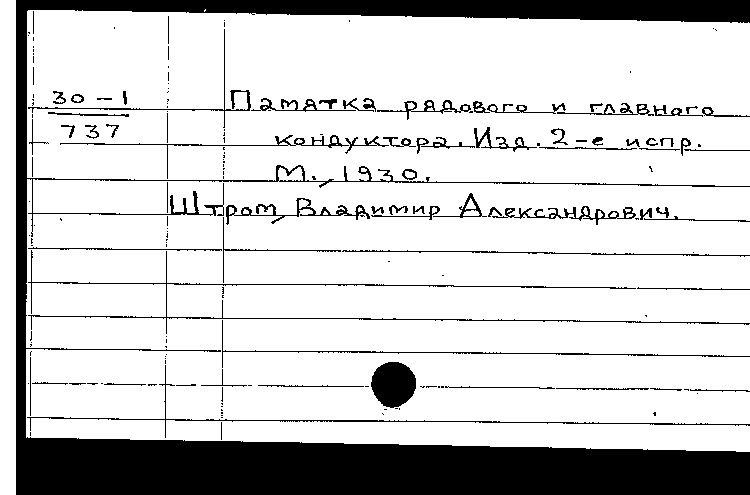 30-1
737
Памятка рядового и главного
кондуктора. Изд. 2-е испр.
М., 1930.
Штром, Владимир Александрович.